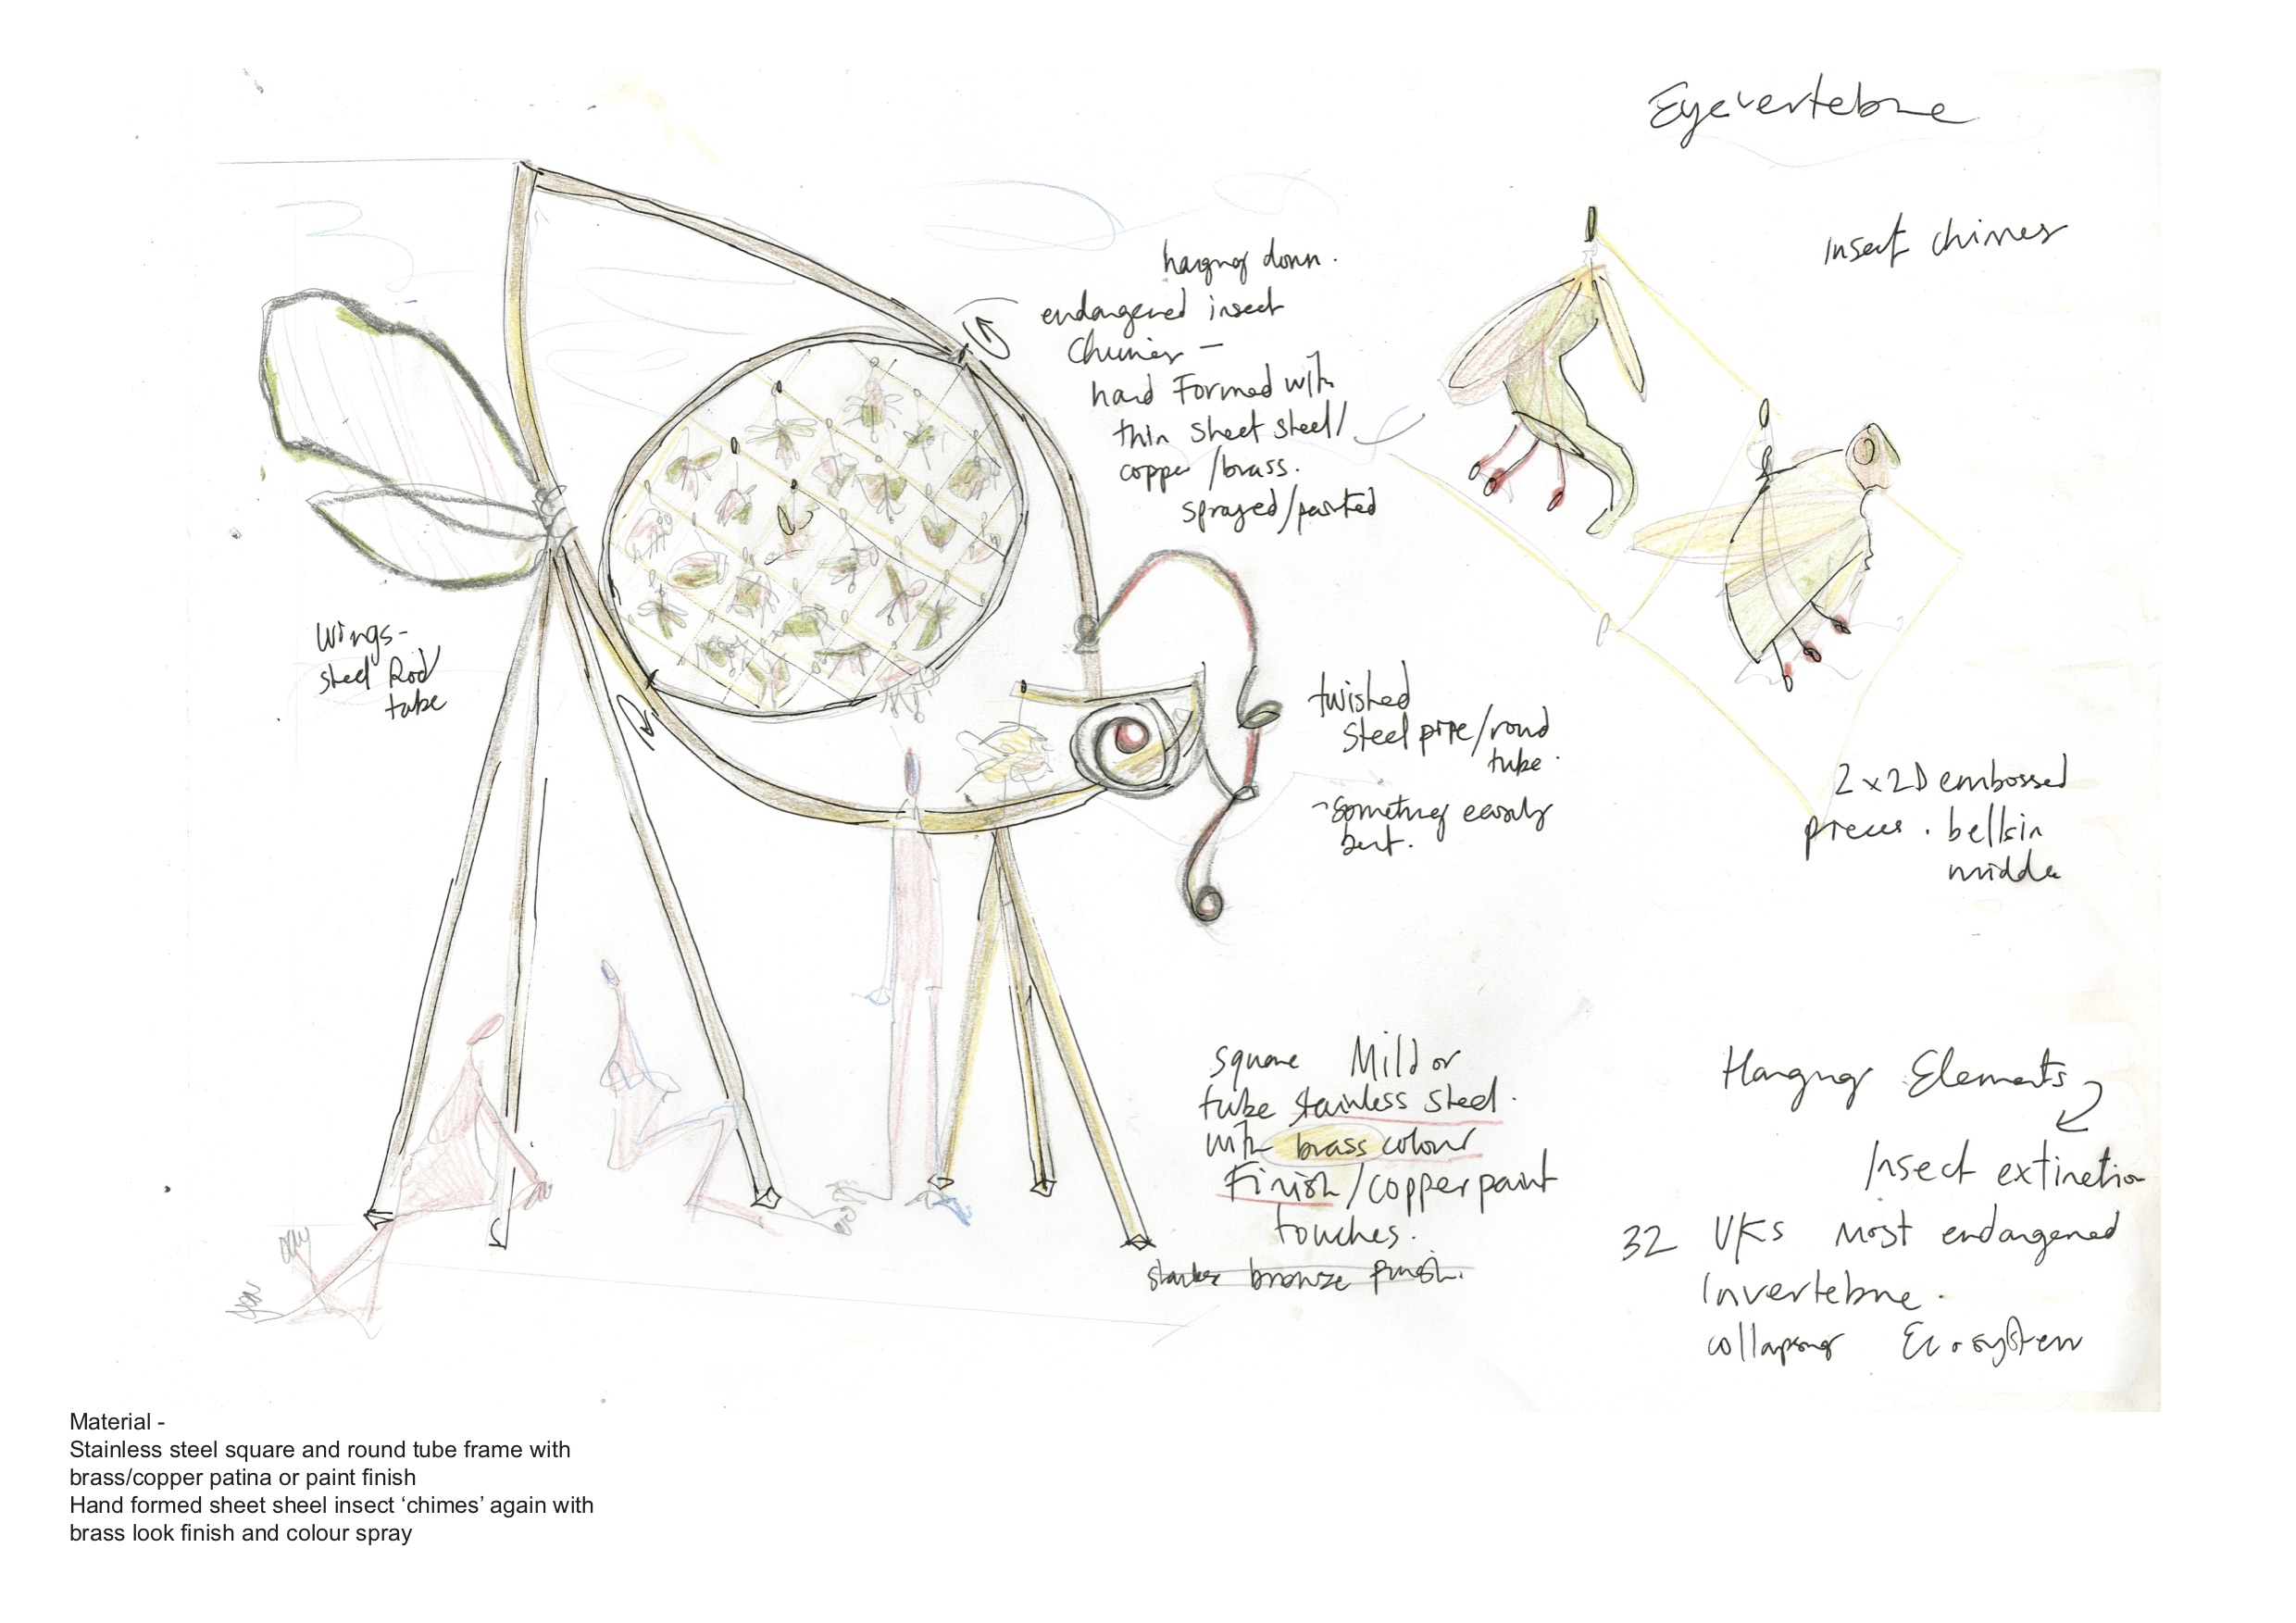 Eyevertebrae
Insect chimes
hanging down.
endangered insect
Chimes –
hand Formed with
thin sheet steel/
copper /brass.
sprayed/painted
Wings-
steel Rod
tube
twisted
steel pipe/round
tube.
~something easily
bent.
2 x 2D embossed
pieces. bells in
middle
square Mild or
tube stainless steel.
with brass colour
Finish/copper paint
touches.
bronze finish.
Hanging Elements
Insect extinction
32 UKs Most endangered
Invertebrae.
collapsing Ecosystem
Material -
Stainless steel square and round tube frame with
brass/copper patina or paint finish
Hand formed sheet sheel insect ‘chimes’ again with
brass look finish and colour spray